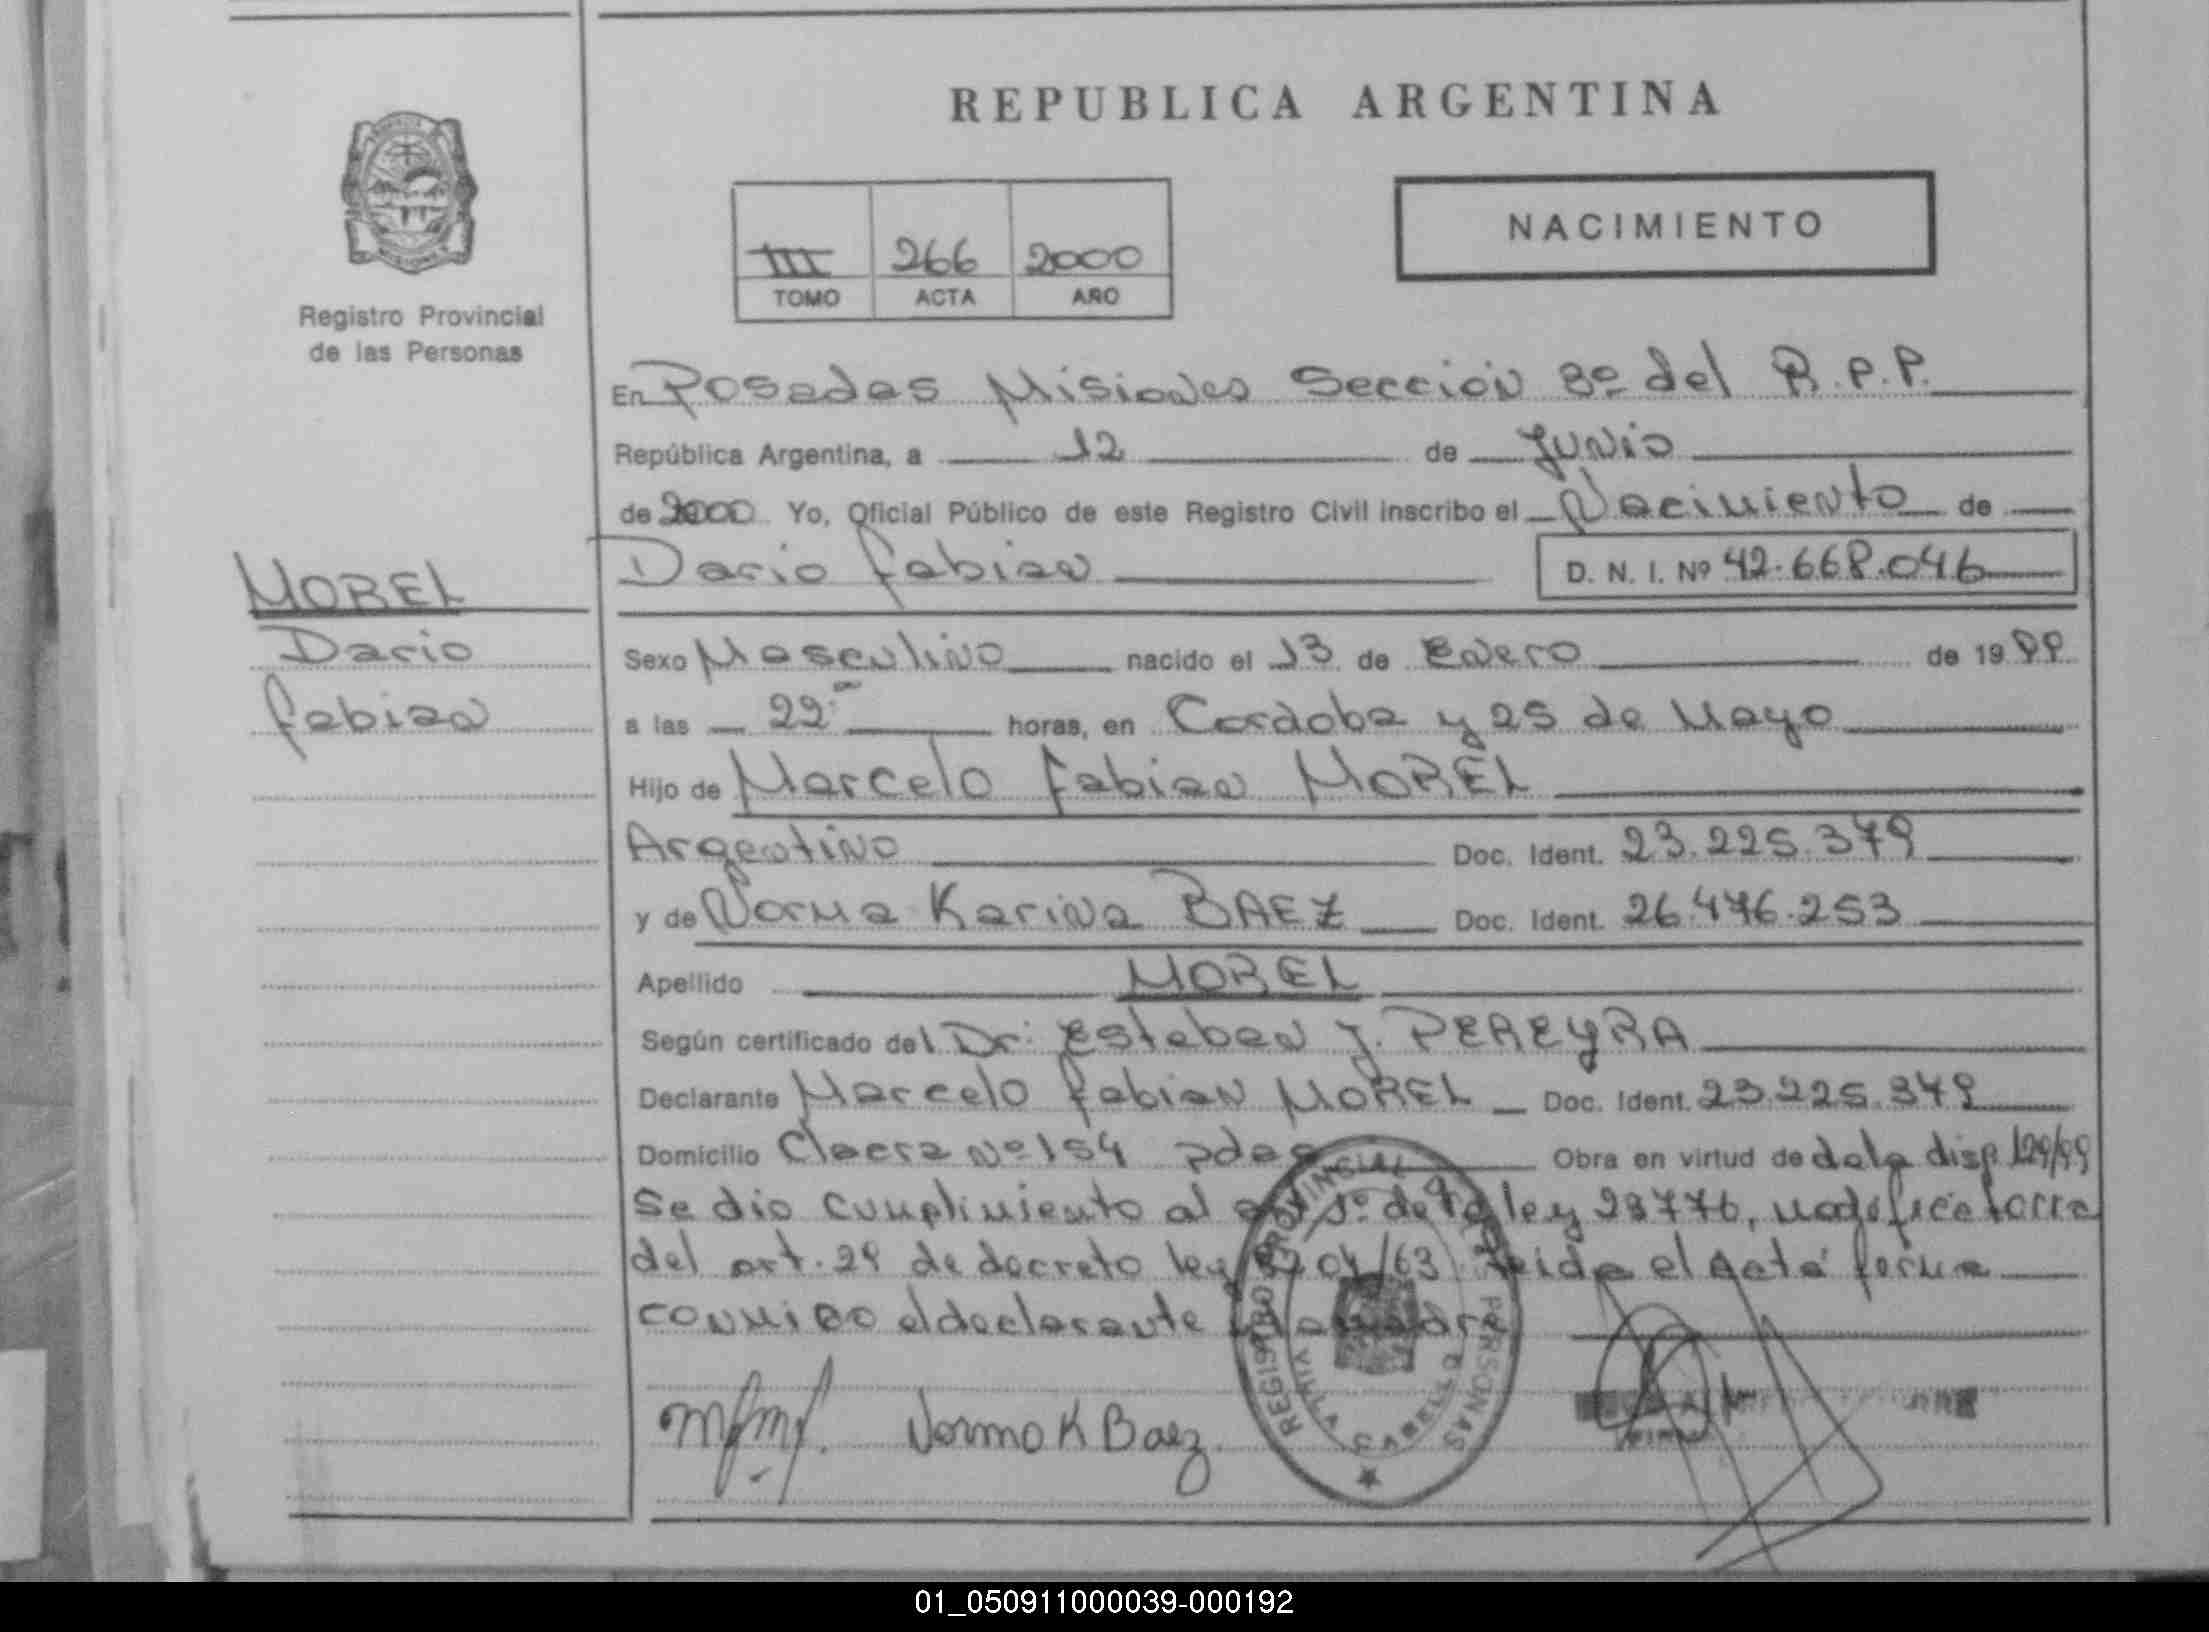 REPUBLICA ARGENTINA
NACIMIENTO
III 266 2000
TOMO ACTA AÑO
Registro Provincial
de las Personas
En Posadas Misiones Sección 8º del R.P.P.
República Argentina, a 12 de Junio
de 2000 Yo, Oficial Público de este Registro Civil inscribo el Nacimiento de
Dario Fabian D. N. I. Nº 42.668.046
MOREL
Dario
Fabian
Sexo Masculino nacido el 13 de Enero de 1999
a las 22 horas, en Cordoba y 25 de Mayo
Hijo de Marcelo Fabian MOREL
Argentino Doc. Ident. 23.225.379
y de Norma Karina BAEZ Doc. Ident. 26.476.253
Apellido MOREL
Según certificado del Dr. Esteban J. PEREYRA
Declarante Marcelo Fabian MOREL Doc. Ident. 23.225.379
Domicilio Chacra Nº 154 pdas Obra en virtud de dela disp 129/99
Se dio cumplimiento al art 1º de la ley 23776, modificatoria
del art. 29 de decreto ley 8204/63 leida el acta firma
conmigo el declarante y la madre
Norma K Baez
REGISTRO PROVINCIAL DE LAS PERSONAS
VILLA CABELLO
01_050911000039-000192